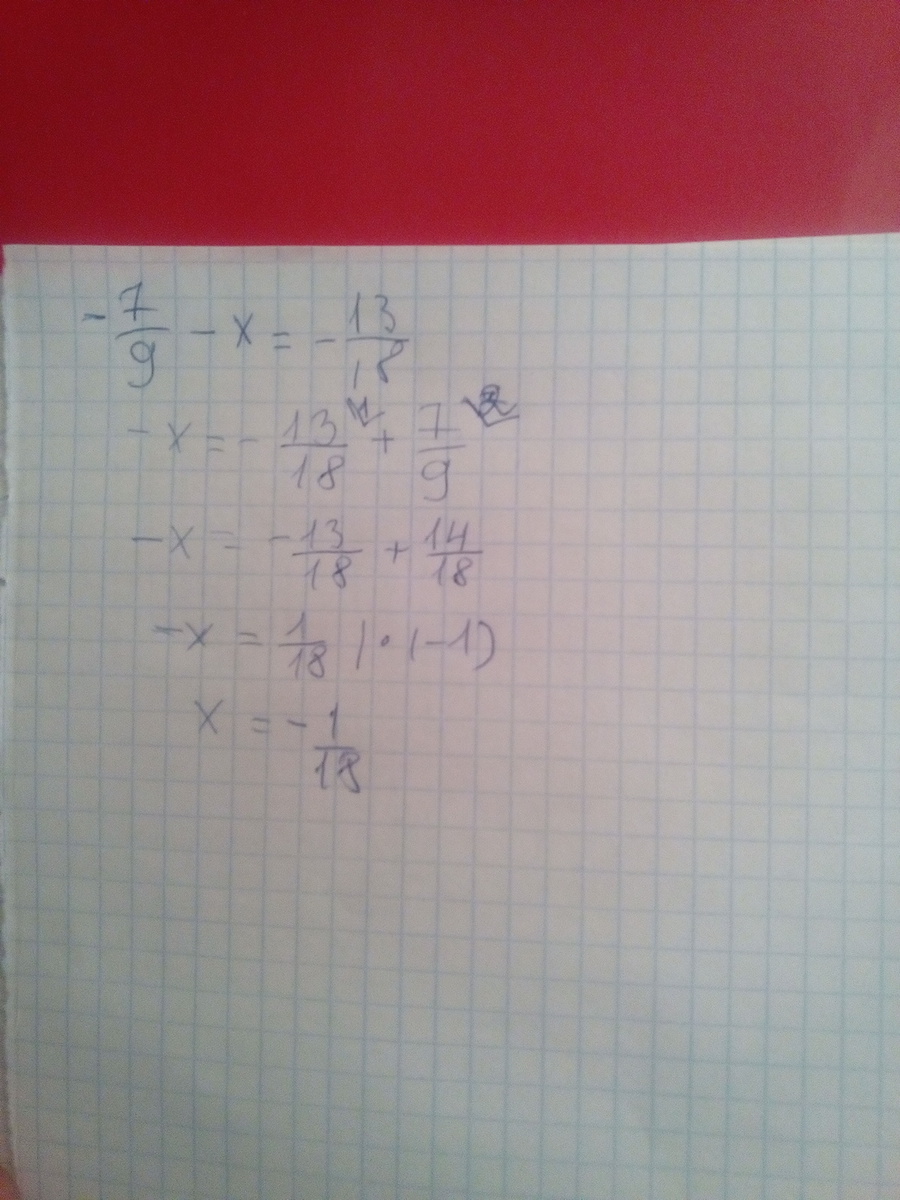 -7/9 - x = -13/18
-x = -13/18 + 7/9
-x = -13/18 + 14/18
-x = 1/18 | · (-1)
x = -1/18